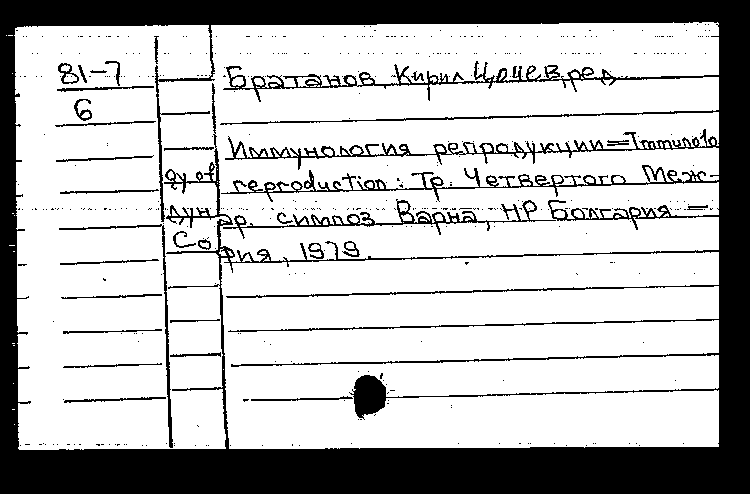 81-7 Братанов, Кирил Цочев, ред
6
Иммунология репродукции=Immunolo
gy of reproduction: Тр. Четвертого Меж-
дунар. симпоз Варна, НР Болгария —
София, 1979.